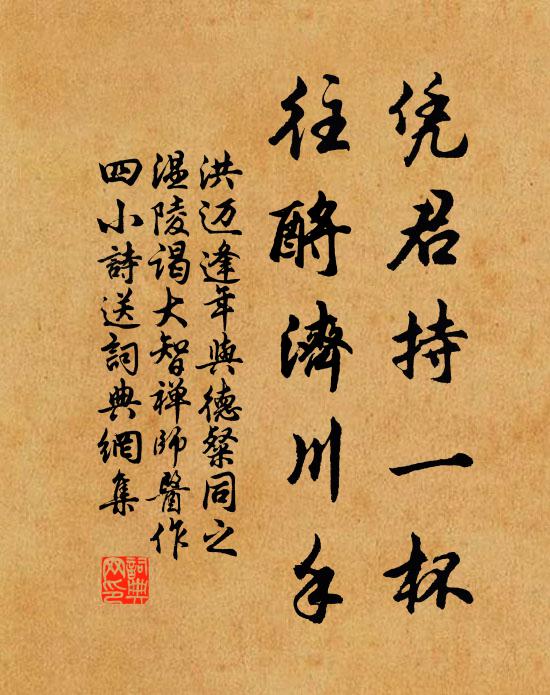 凭君持一杯
往酹济川手
洪迈逢年與德粲同之
温陵谒大智禅師醫作
四小詩送詞典網集
詞典网印